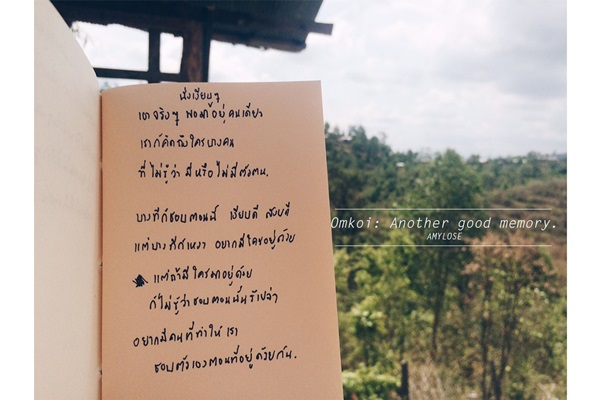 นั่งเงียบๆ
เอาจริงๆ พอมาอยู่คนเดียว
เราก็คิดถึงใครบางคน
ที่ไม่รู้ว่า มีหรือไม่มีตัวตน.
บางทีก็ชอบตอนนี้ เงียบดี สงบดี
แต่บางทีก็เหงา อยากมีใครอยู่ด้วย
แต่ถ้ามีใครมาอยู่ด้วย
ก็ไม่รู้ว่าชอบตอนนั้นรึเปล่า
อยากมีคนที่ทำให้เรา
ชอบตัวเองตอนที่อยู่ด้วยกัน.
Omkoi: Another good memory.
AMYLOSE